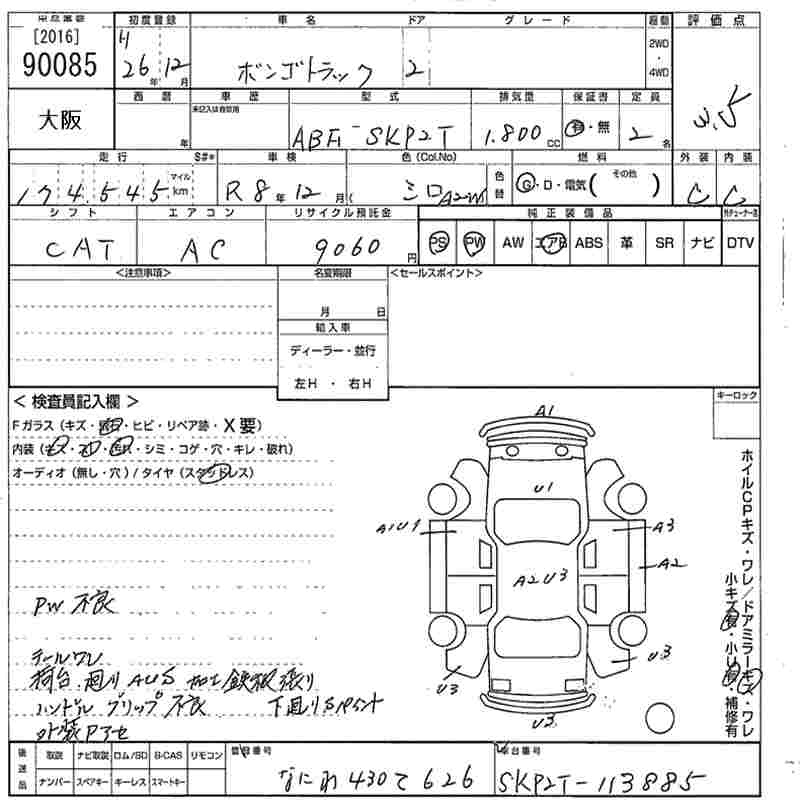 [2016]
90085
大阪
初度登録
H
26年 12月
車名
ボンゴトラック
ドア
2
グレード
駆動
2WD
・
4WD
評価点
3.5
西暦
年
車歴
未記入は自家用
型式
ABF-SKP2T
排気量
1.800 CC
保証書
有・無
定員
2名
走行
S#*
174,545
マイル
km
車検
R8年12月
色 (Col.No)
シロ A2W
色替
燃料
G・D・電気( その他 )
外装
C
内装
C
シフト
CAT
エアコン
AC
リサイクル預託金
9060円
純正装備品
PS PW AW エアB ABS 革 SR ナビ
DTV
<注意事項>
名変期限
月 日
輸入車
ディーラー・並行
左H ・ 右H
<セールスポイント>
キーロック
< 検査員記入欄 >
Fガラス (キズ・ ・ヒビ・リペア跡・X要)
内装 (キズ・ ・ ・シミ・コゲ・穴・キレ・破れ)
オーディオ (無し・穴) / タイヤ (スタッドレス)
PW 不良
テールワレ
荷台廻りAUS 加工鉄板張り
ハンドル グリップ不良 下廻りSペイント
外装Pアセ
A1
U1
A1U1
A3
A2
A2U3
U3
U3
U3
ホイルCPキズ・ワレ/ドアミラーキズ・ワレ
小キズ有・小U有・補修有
後送品
取説 ナビ取説 ロム/SD B-CAS リモコン
ナンバー スペアキー キーレス スマートキー
登録番号
なにわ 430 て 626
車台番号
SKP2T-113885